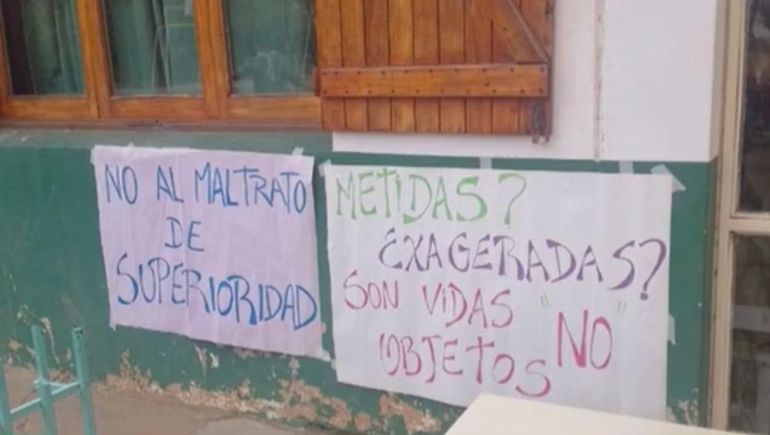 NO AL MALTRATO
DE
SUPERIORIDAD
METIDAS?
EXAGERADAS?
SON VIDAS "NO"
OBJETOS